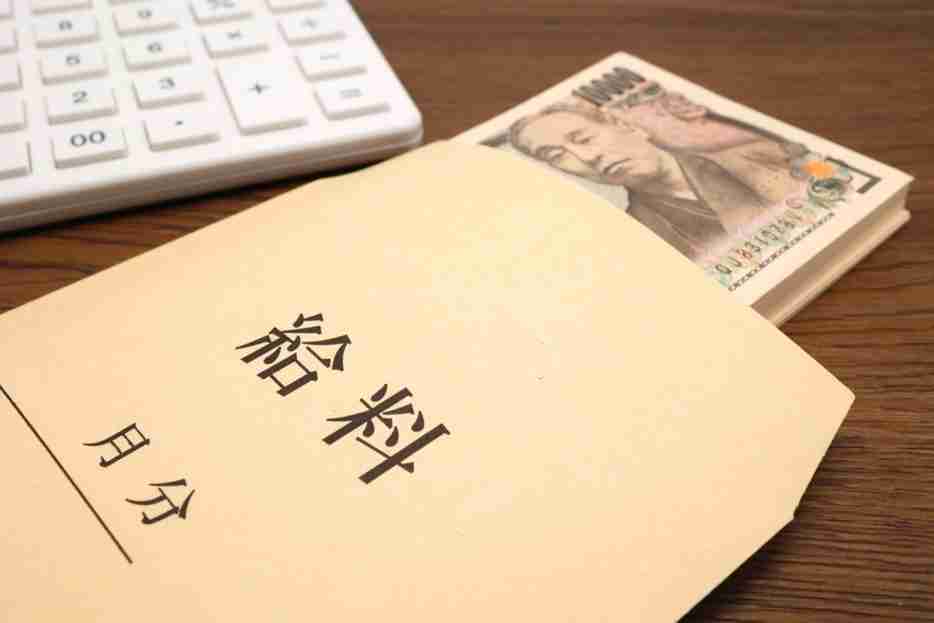 給料
月分
10000
8
%
÷
5
6
×
2
3
+
=
00